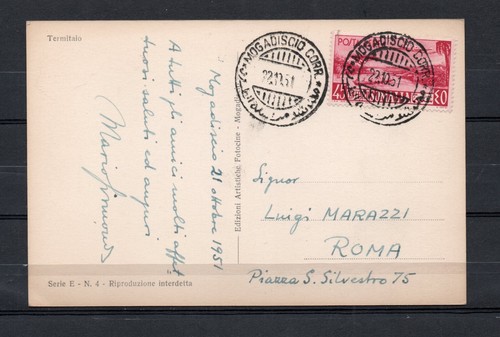 Termitaio
MOGADISCIO CORR.
22.10.51
MOGADISCIO CORR.
22.10.51
POSTE
45
SOMALIA
Mogadiscio 21 ottobre 1951
A tutti gli amici molti affet
tuosi saluti ed auguri
Mario
Edizioni Artistiche Fotocine - Mogadiscio
Signor
Luigi MARAZZI
ROMA
Piazza S. Silvestro 75
Serie E - N. 4 - Riproduzione interdetta